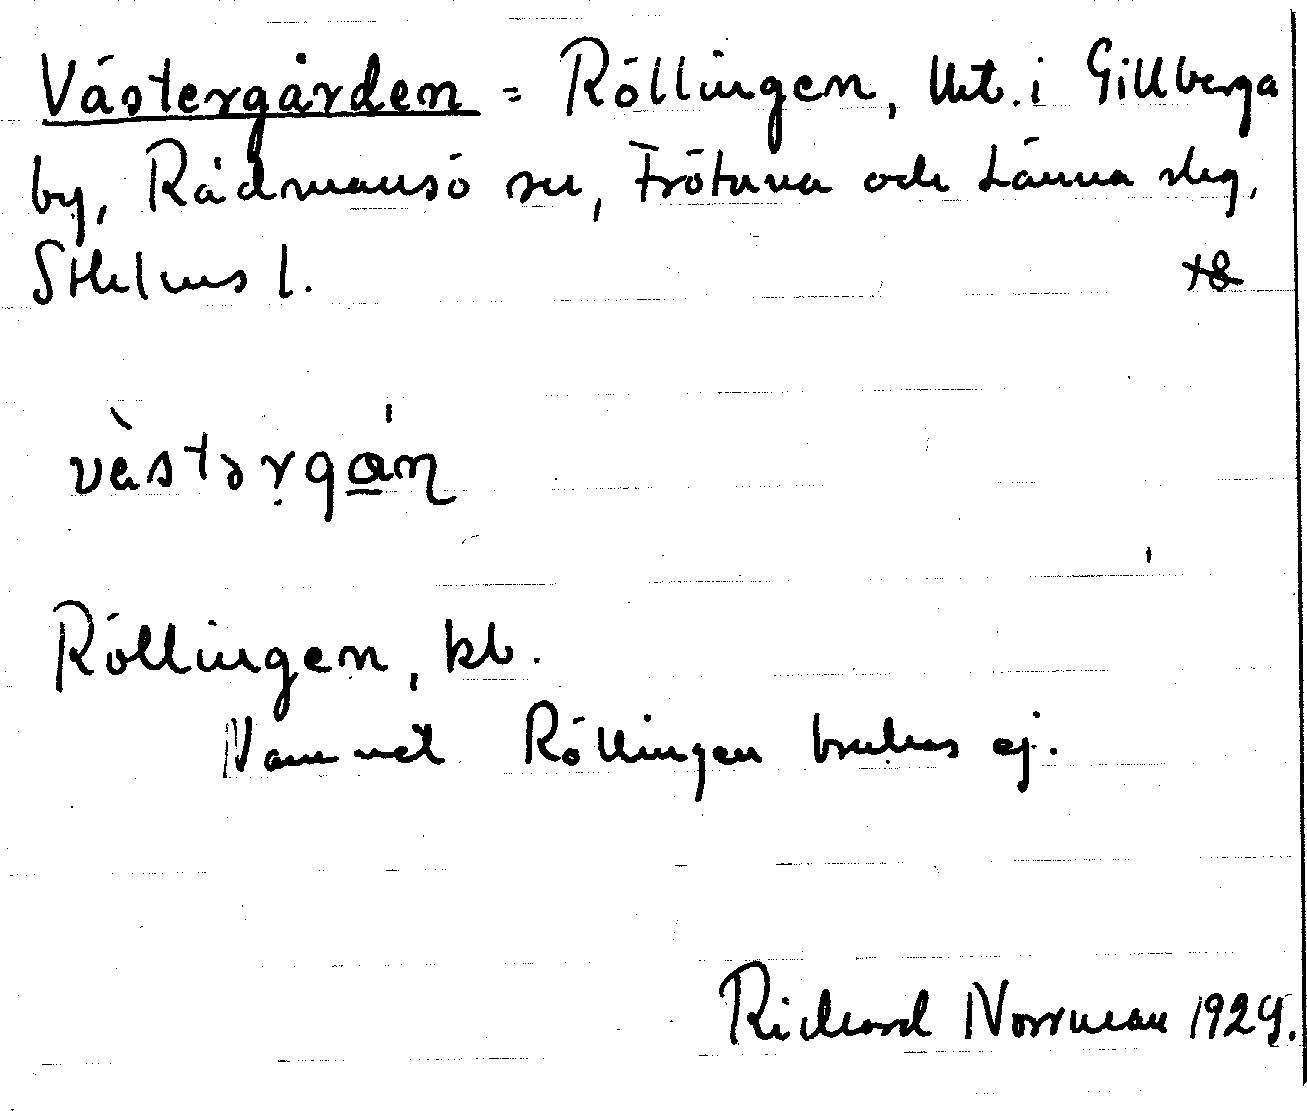 Västergården = Röllingen, lht. i Gillberga
by, Rådmansö sn, Frötuna och Länna slg,
Sthlms l.
västərgán
Röllingen, kb.
Namnet Röllingen brukas ej.
Richard Norrman 1929.